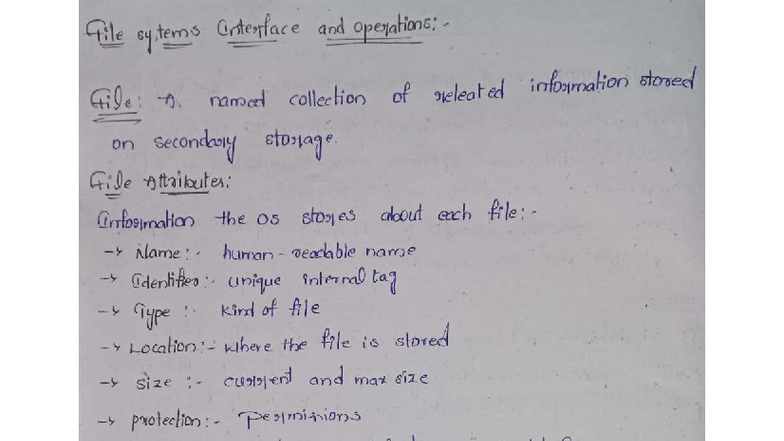 File systems Interface and operations:-
File: A named collection of releated information stored
on secondary storage.
File Attributes:
Information the OS stores about each file:-
→ Name:- human-readable name
→ Identifier:- unique internal tag
→ Type:- Kind of file
→ Location:- where the file is stored
→ size:- current and max size
→ protection:- Permissions